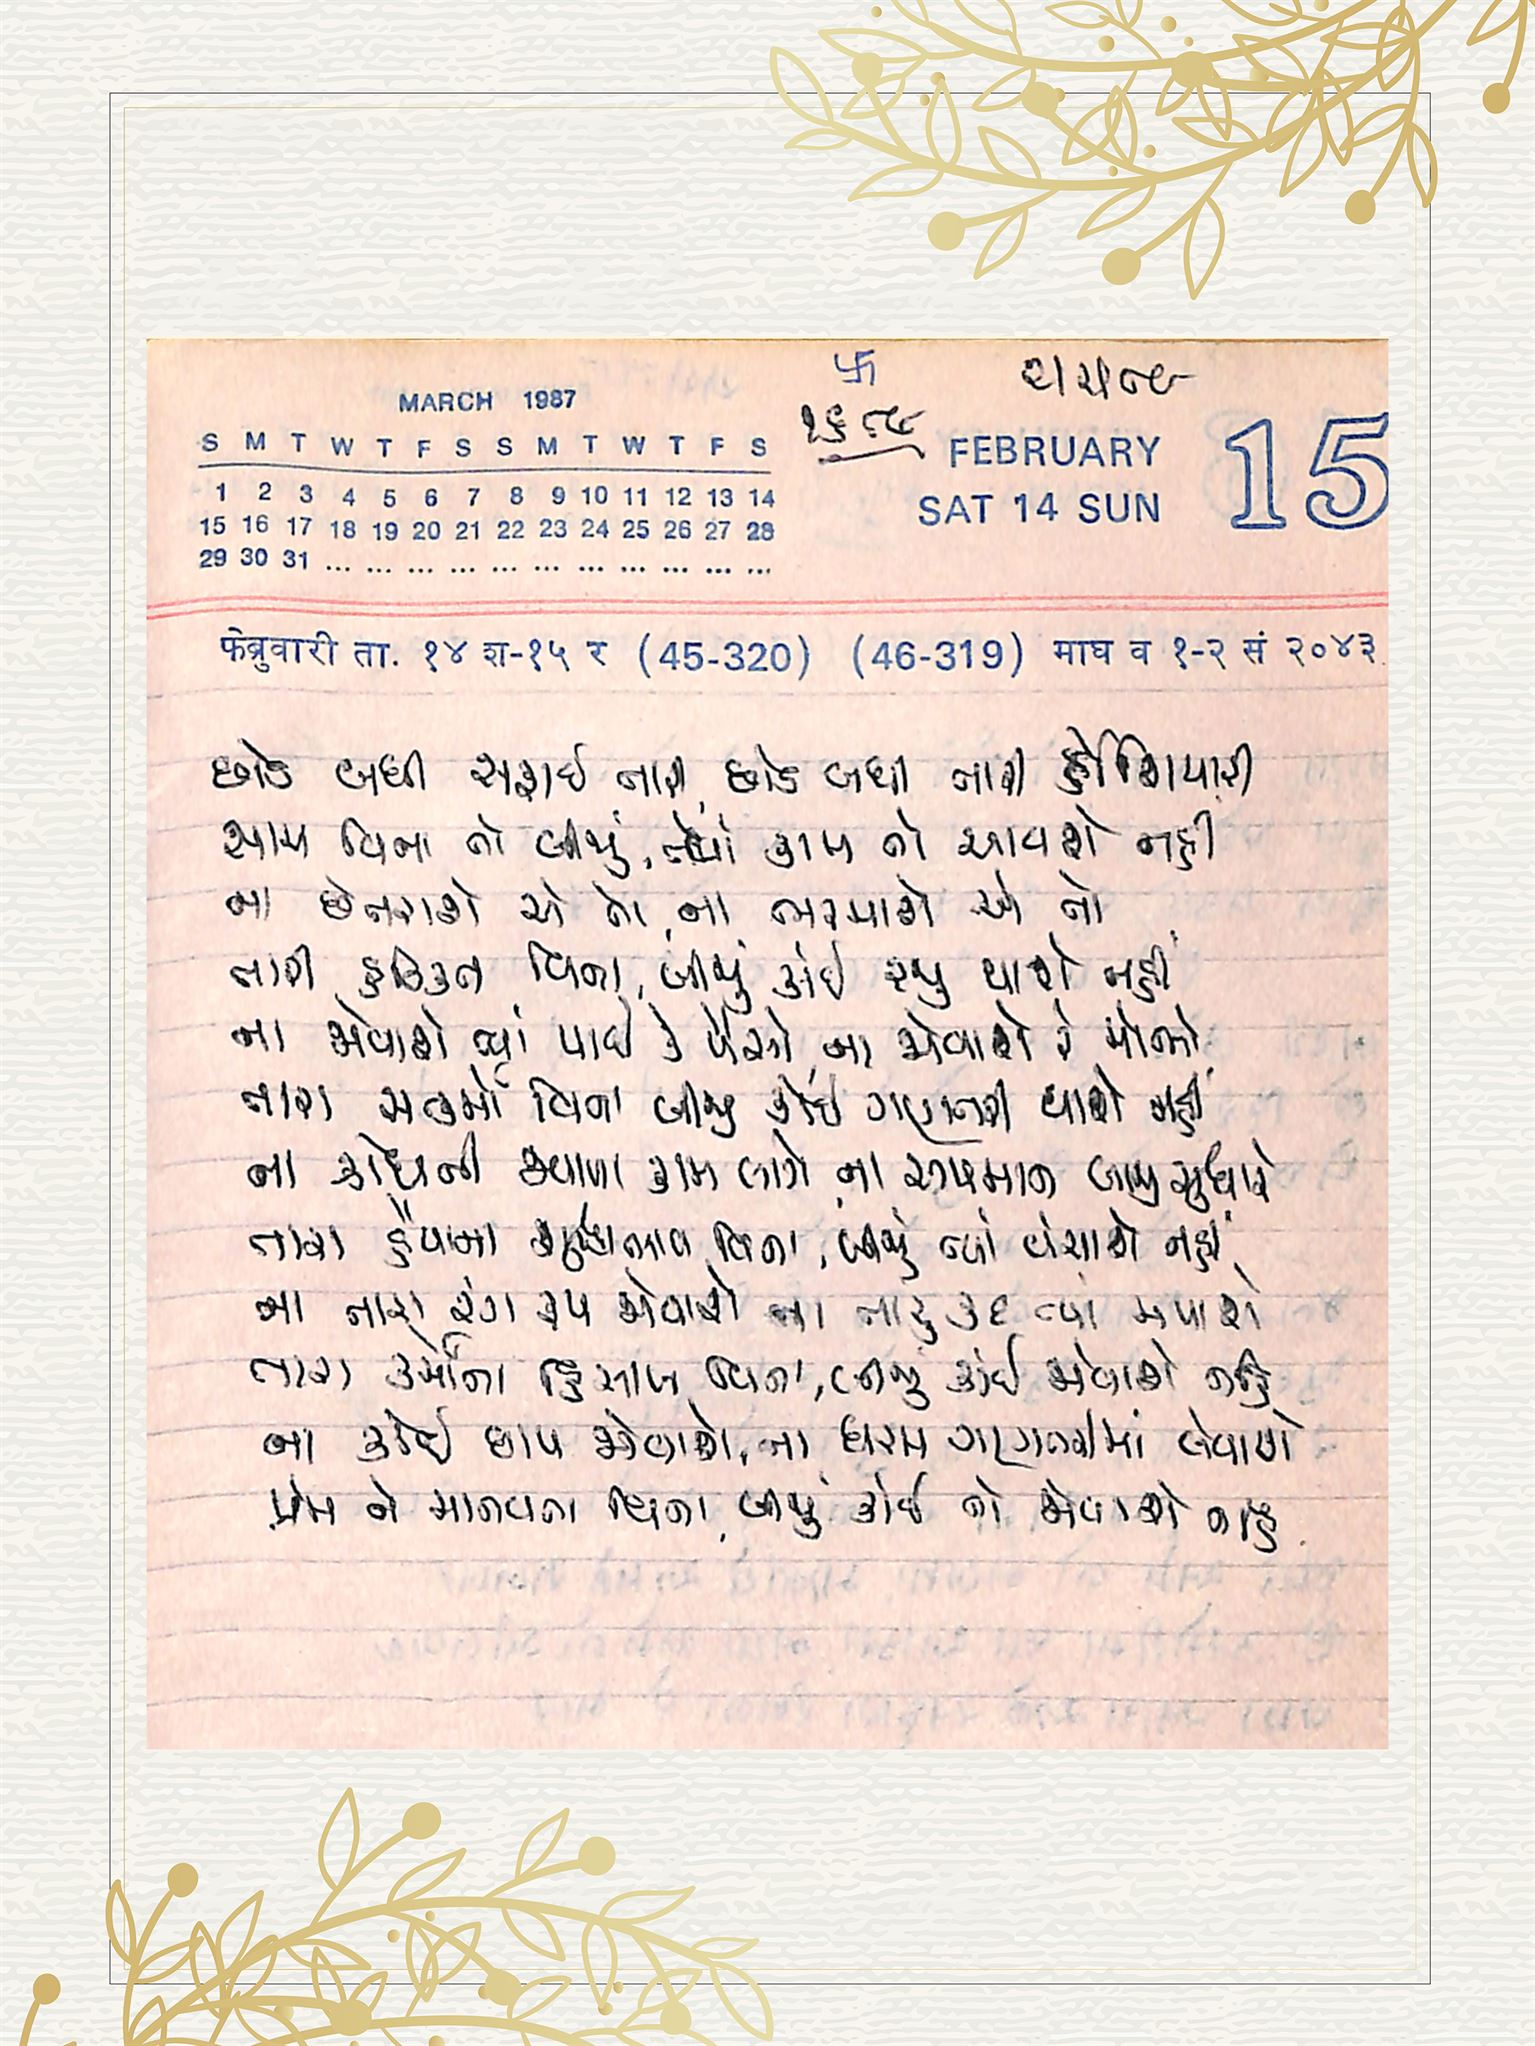 MARCH 1987
S M T W T F S S M T W T F S
1 2 3 4 5 6 7 8 9 10 11 12 13 14
15 16 17 18 19 20 21 22 23 24 25 26 27 28
29 30 31 ... ... ... ... ... ... ... ... ... ... ...
卐
૧૬૯૮
FEBRUARY
SAT 14 SUN
15
फेब्रुवारी ता. १४ श-१५ र (45-320) (46-319) माघ व १-२ सं २०४३
છોડ બધી સફાઈ તારી, છોડ બધી તારી હોશિયારી
સાચ વિના તો બીજું, ત્યાં કામ તો આવશે નહીં
ના છેતરાશે એ તો, ના ભરમાશે એ તો
તારી હકીકત વિના, બીજું કાંઈ રજુ થાશે નહીં
ના જોવાશે ત્યાં પાઈ કે પૈસો, ના જોવાશે રે મોભો
તારા સતકર્મો વિના બીજું કોઈ ગણતરી થાશે નહીં
ના ક્રોધની જ્વાળા કામ લાગે, ના અપમાન બાજી સુધારે
તારા હૈયાના શુદ્ધભાવ વિના, બીજું ત્યાં વંચાશે નહીં
ના તારા રંગ રૂપ જોવાશે ના તારું કદ ત્યાં મપાશે
તારા કર્મોના હિસાબ વિના, બીજું કાંઈ જોવાશે નહિ
ના કોઈ છાપ જોવાશે, ના ધરમ ગણતરીમાં લેવાશે
પ્રેમ ને માનવતા વિના, બીજું કોઈ તો જોવાશે નહિ